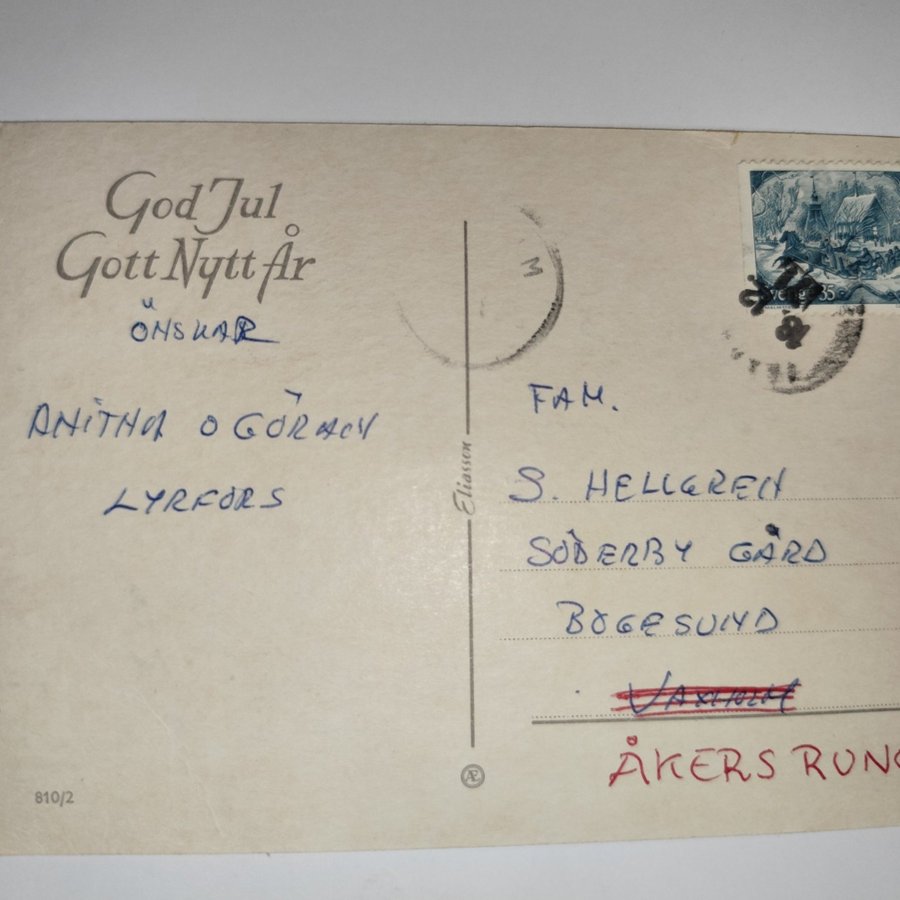 God Jul
Gott Nytt År
ÖNSKAR
ANITHA O GÖRAN
LYRFORS
810/2
Eliasson
Æ
3
SVERIGE 35
FAM.
S. HELLGREN
SÖDERBY GÅRD
BOGESUND
VAXHOLM
ÅKERS RUNÖ